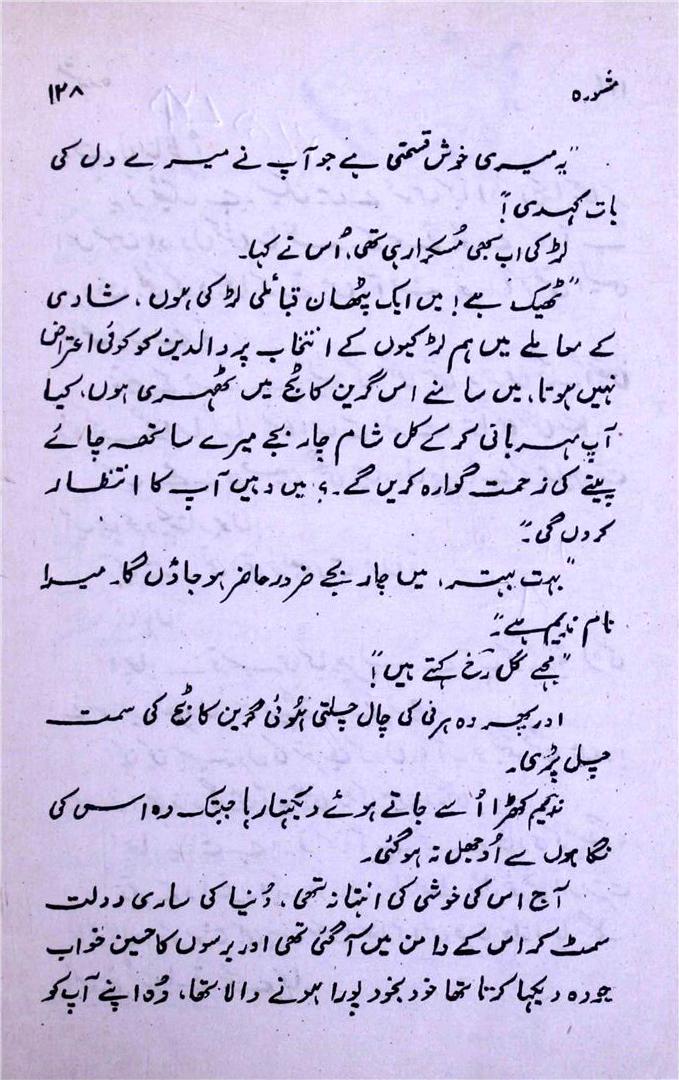 مشورہ
۱۳۸
"یہ میری خوش قسمتی ہے جو آپ نے میرے دل کی
بات کہدی!"
لڑکی اب بھی مُسکرا رہی تھی، اُس نے کہا۔
"ٹھیک ہے! میں ایک پٹھان قبائلی لڑکی ہوں، شادی
کے معاملے میں ہم لڑکیوں کے انتخاب پر والدین کو کوئی اعتراض
نہیں ہوتا، میں سامنے اس گرین کاٹج میں ٹھہری ہوں، کیا
آپ مہربانی کر کے کل شام چار بجے میرے ساتھ چائے
پینے کی زحمت گوارہ کریں گے۔؟ میں وہیں آپ کا انتظار
کروں گی۔"
"بہت بہتر، میں چار بجے ضرور حاضر ہو جاؤں گا۔ میرا
نام ندیم ہے۔"
"مجھے گل رُخ کہتے ہیں!"
اور پھر وہ ہرنی کی چال چلتی ہُوئی گرین کاٹج کی سمت
چل پڑی۔
ندیم کھڑا اُسے جاتے ہوئے دیکھتا رہا جبتک وہ اس کی
نگاہوں سے اُوجھل نہ ہو گئی۔
آج اس کی خوشی کی انتہا نہ تھی، دُنیا کی ساری دولت
سمٹ کر اس کے دامن میں آگئی تھی اور برسوں کا حسین خواب
جو وہ دیکھا کرتا تھا خود بخود پورا ہونے والا تھا، وُہ اپنے آپ کو